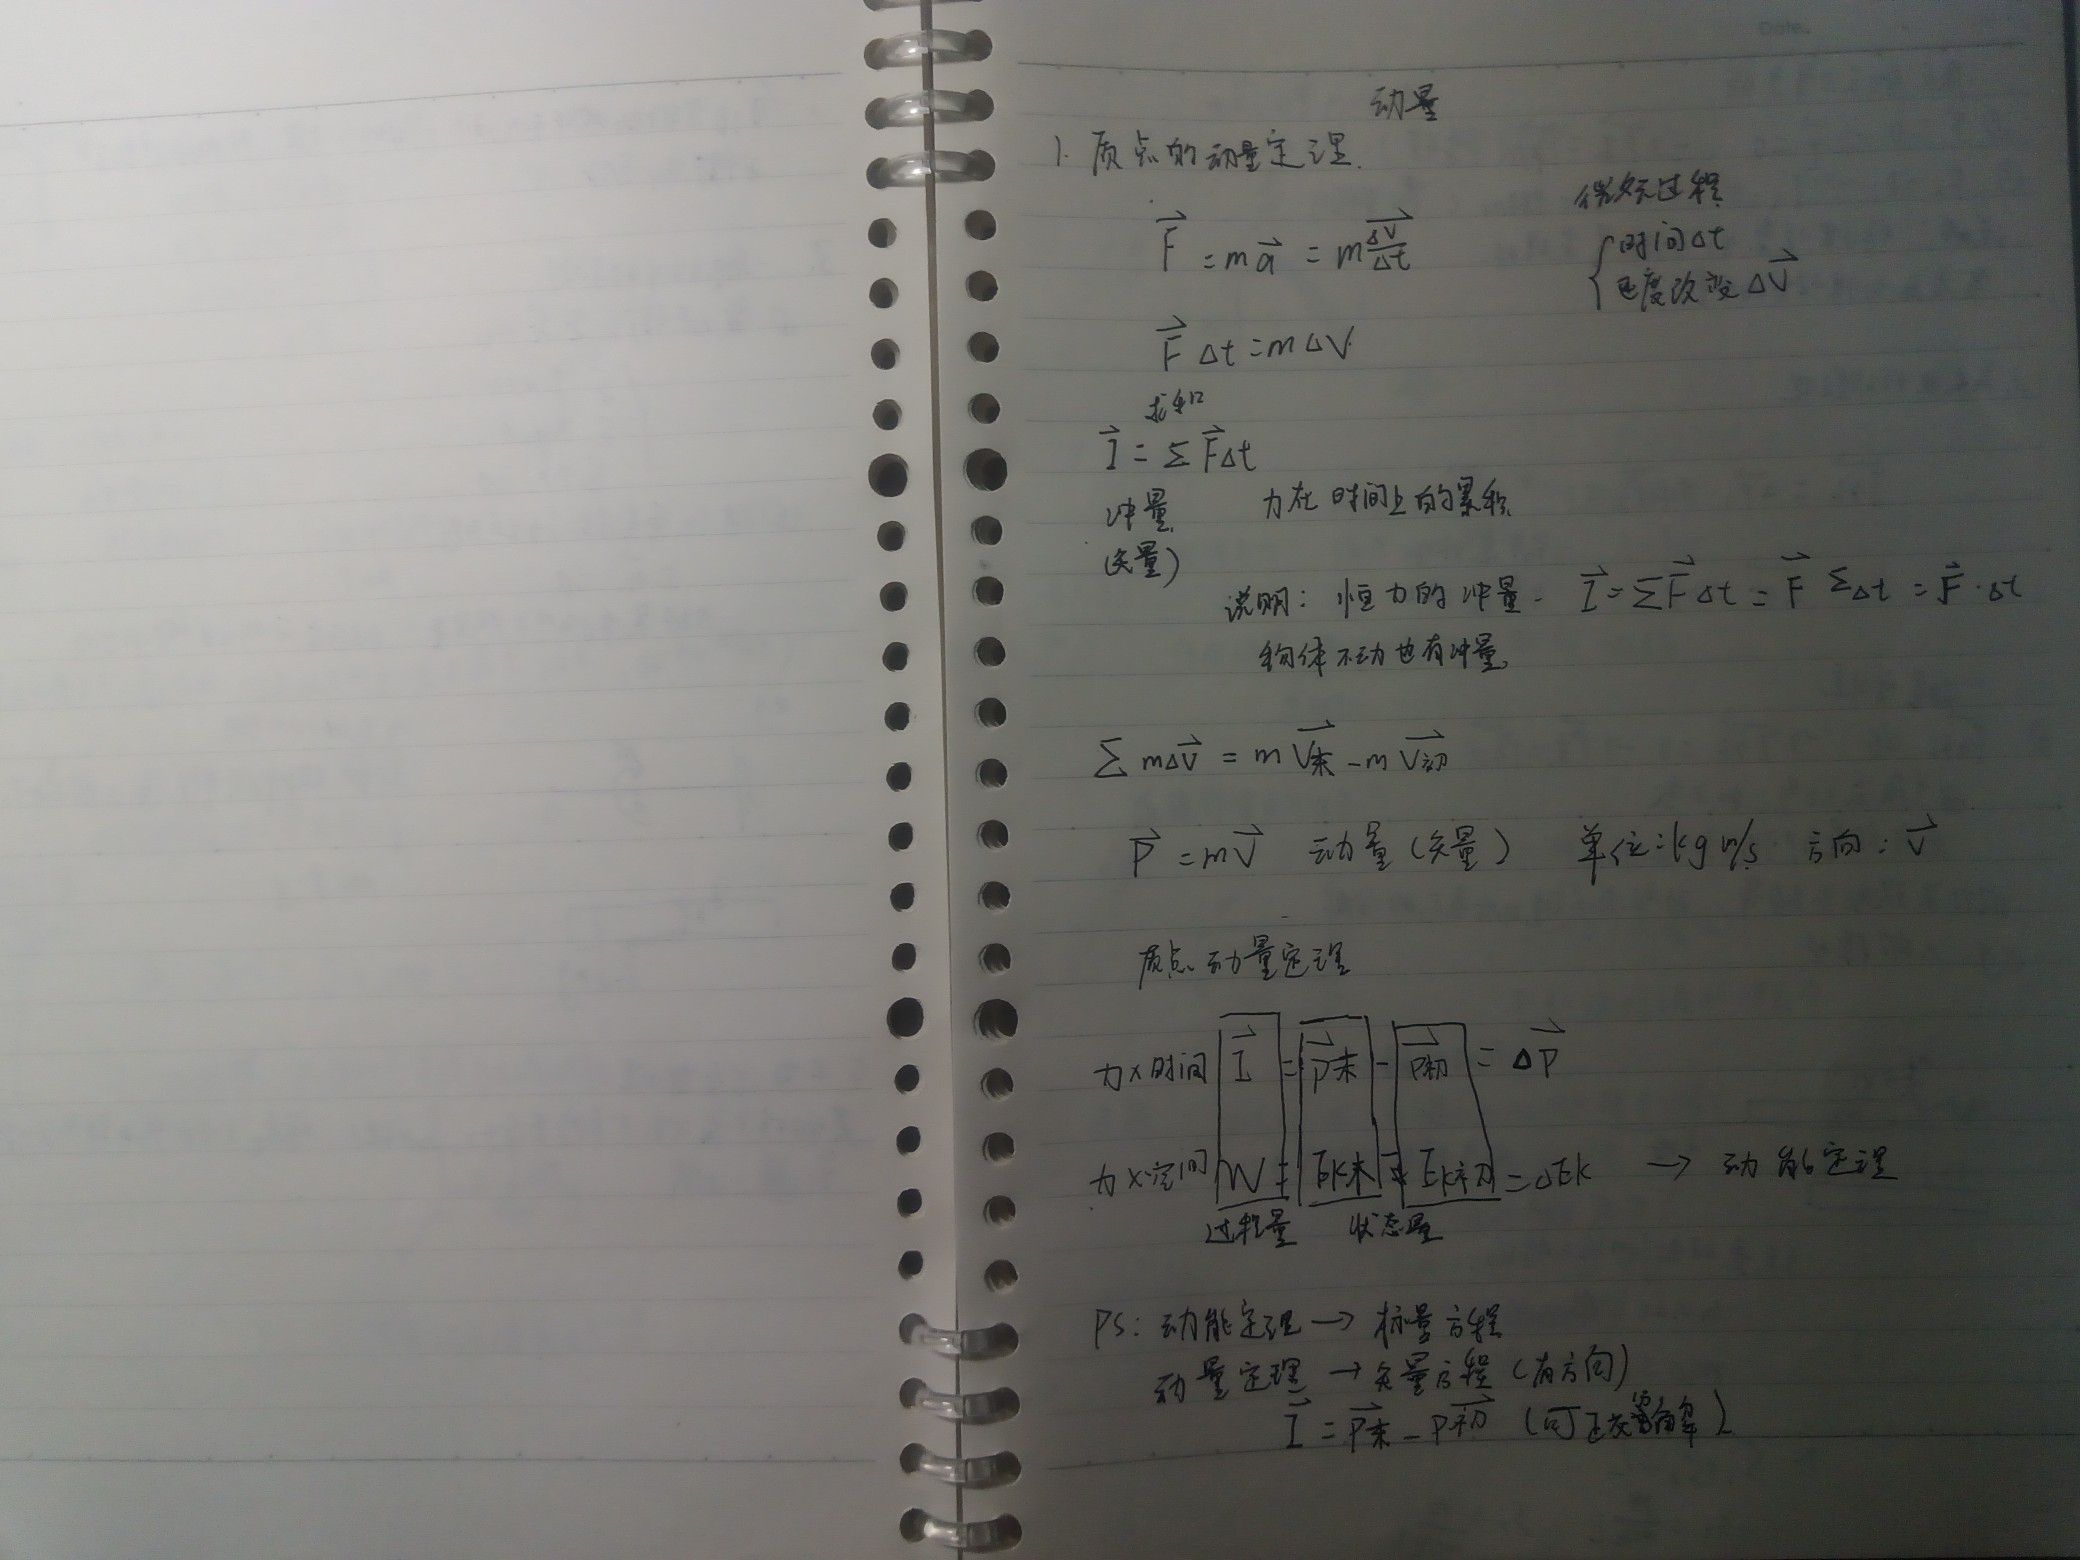 动量
1. 质点的动量定理.
微元过程
F⃗ = ma⃗ = m Δv⃗/Δt
{ 时间Δt
速度改变ΔV⃗
F⃗ Δt = mΔV
求和
I⃗ = Σ F⃗Δt
冲量 力在时间上的累积
(矢量)
说明: 恒力的冲量. I⃗ = ΣF⃗Δt = F⃗ ΣΔt = F⃗·Δt
物体不动也有冲量
Σ mΔv⃗ = mV⃗末 - mV⃗初
P⃗ = mV⃗ 动量(矢量) 单位:kg m/s 方向: V⃗
质点动量定理
力×时间 I⃗ = P⃗末 - P⃗初 = ΔP⃗
力×空间 W = Ek末 - Ek初 = ΔEk → 动能定理
过程量 状态量
PS: 动能定理 → 标量方程
动量定理 → 矢量方程 (有方向)
I⃗ = P⃗末 - P⃗初 (可正交分解)